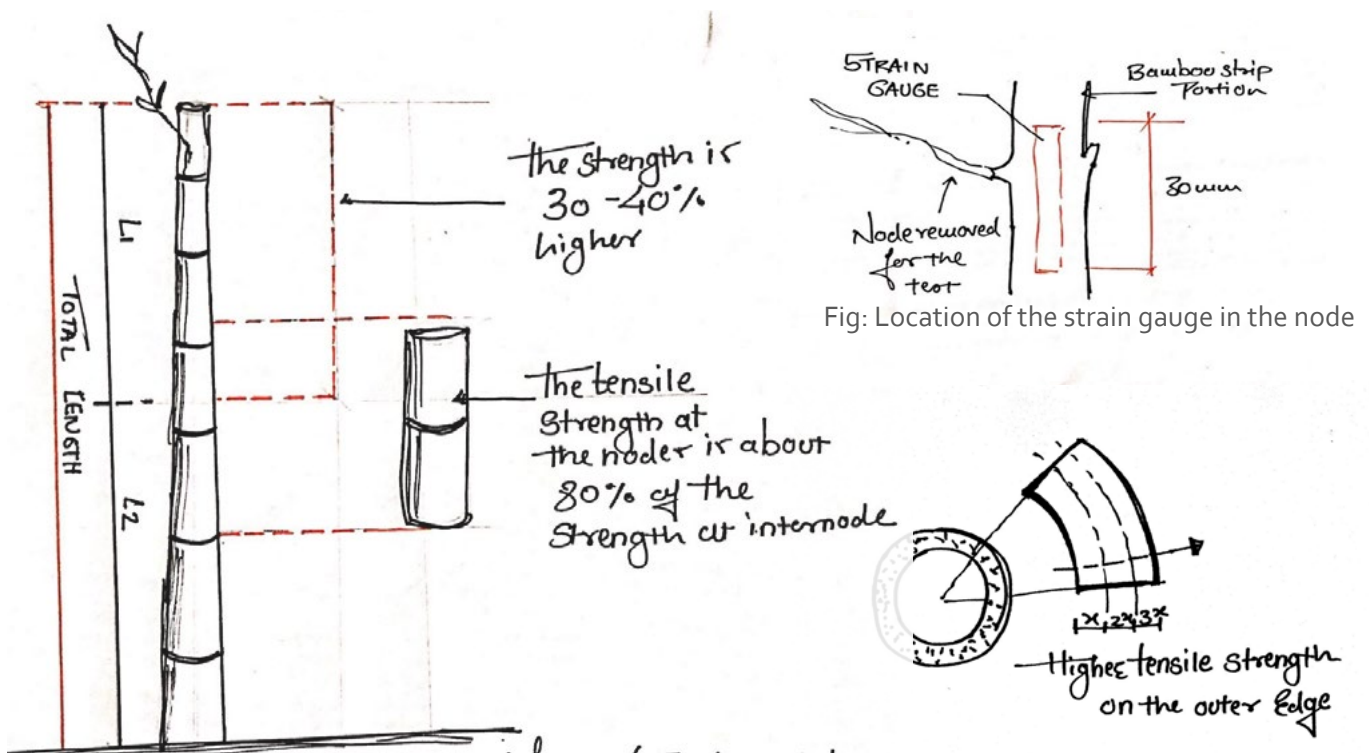 TOTAL LENGTH
L1
L2
The strength is
30-40%
higher
The tensile
Strength at
the nodes is about
80% of the
Strength at internode
STRAIN
GAUGE
Bamboo strip
Portion
30mm
Node removed
for the
test
Fig: Location of the strain gauge in the node
x 2x 3x
Higher tensile strength
on the outer Edge